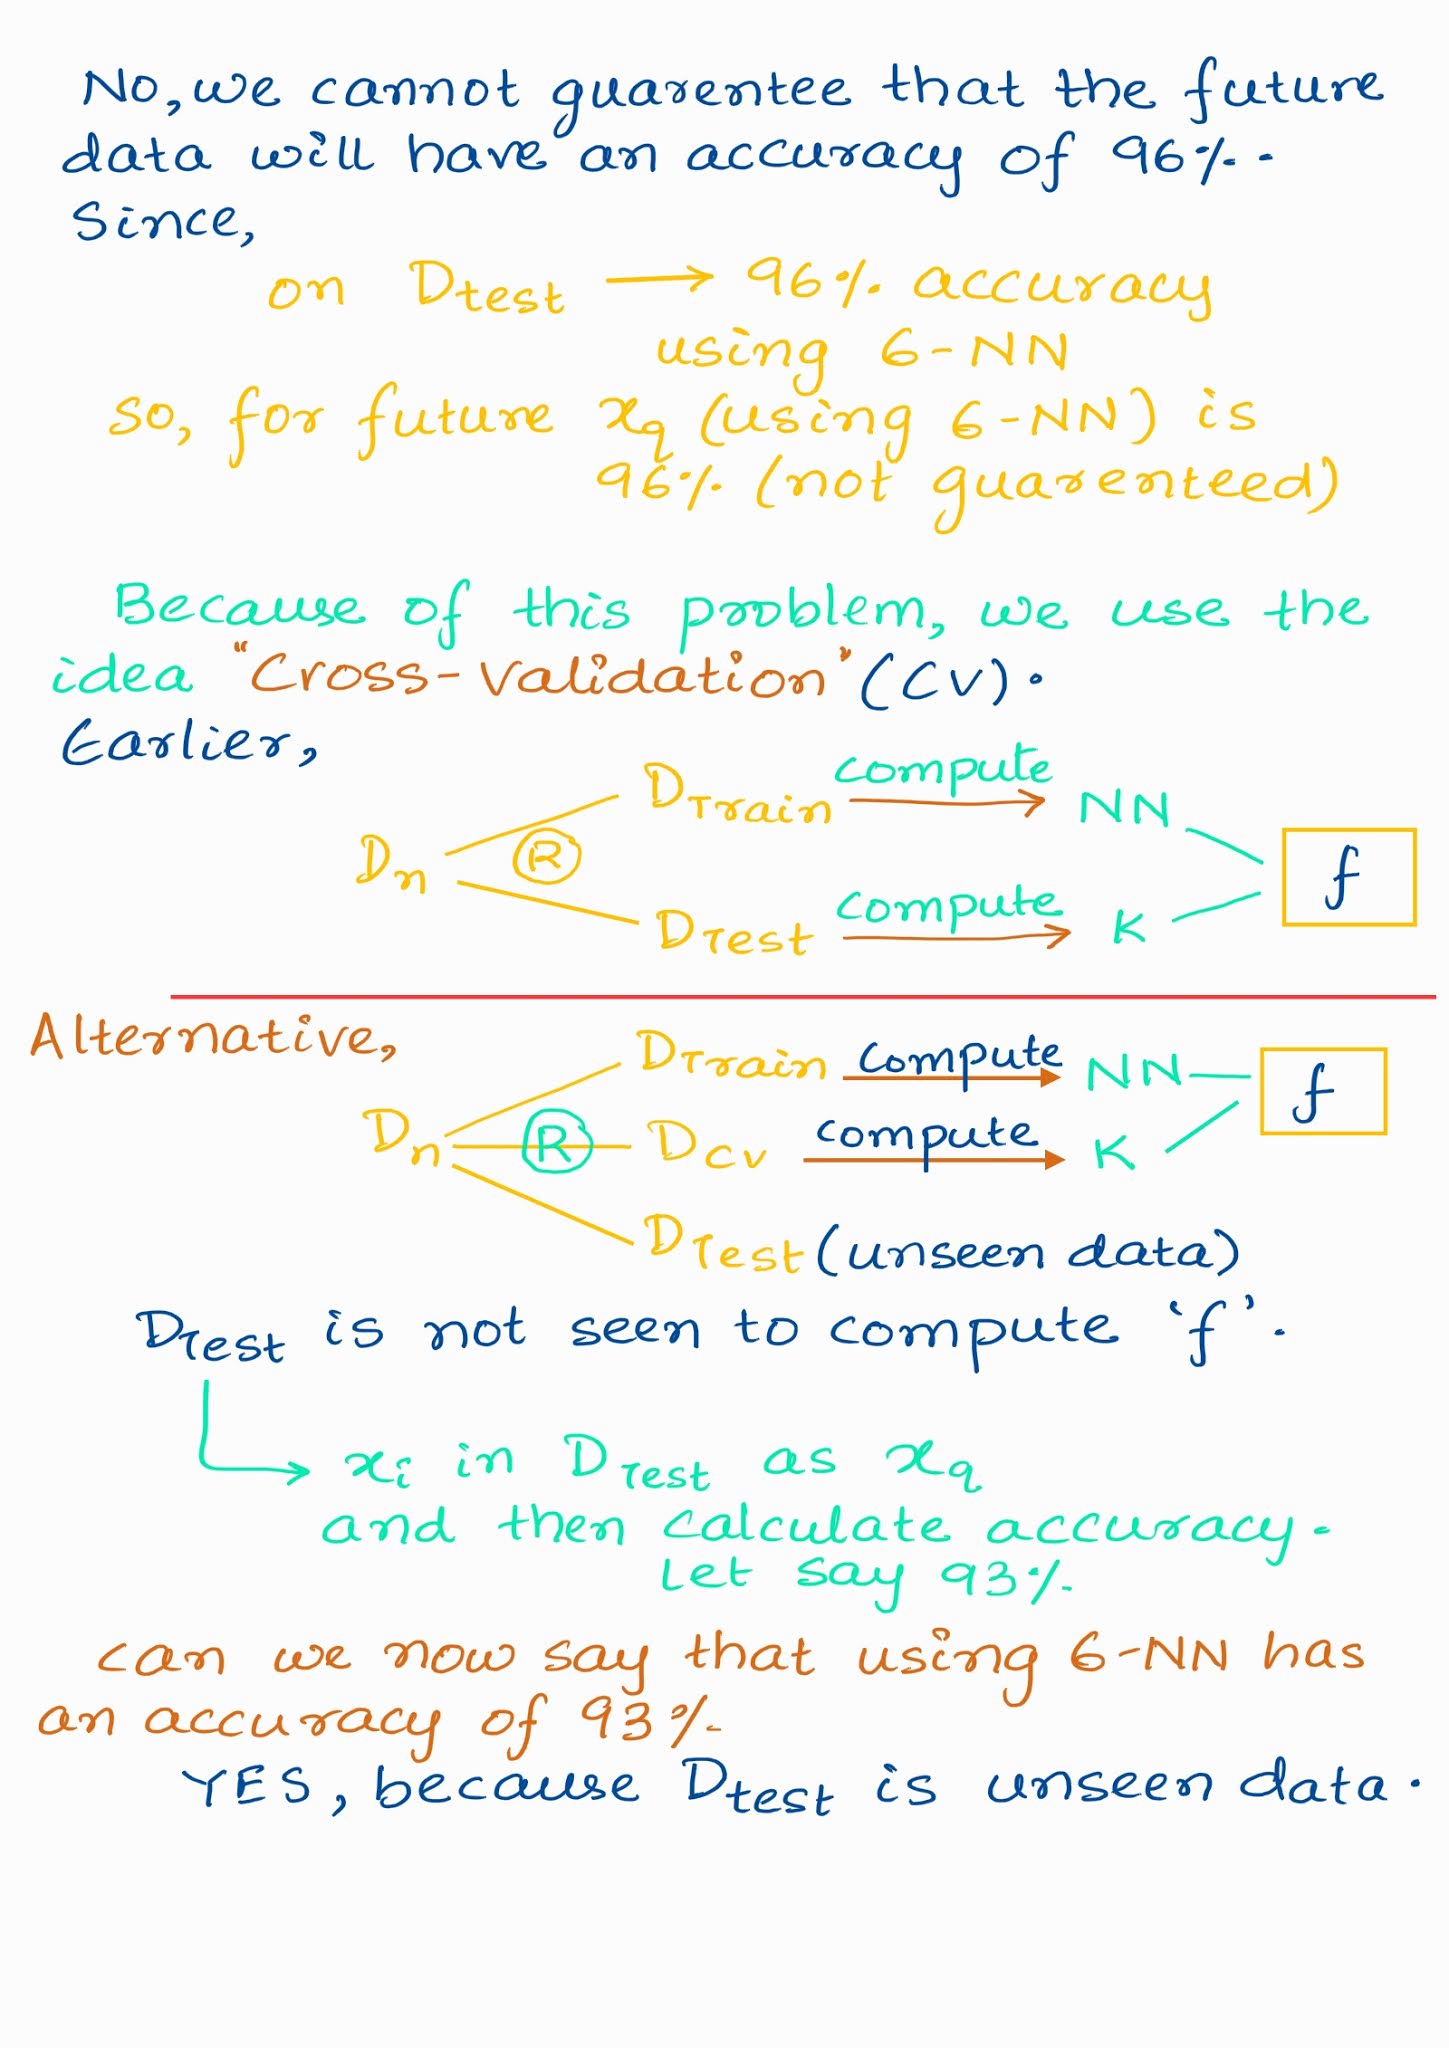 No, we cannot guarentee that the future
data will have an accuracy of 96%.
Since,
on Dtest → 96% accuracy
using 6-NN
so, for future xq (using 6-NN) is
96% (not guarenteed)
Because of this problem, we use the
idea "Cross-Validation" (CV).
Earlier,
DTrain compute NN
Dn R f
DTest compute K
Alternative,
DTrain compute NN f
Dn R DCV compute K
DTest (unseen data)
DTest is not seen to compute 'f'.
xi in DTest as xq
and then calculate accuracy.
Let say 93%
can we now say that using 6-NN has
an accuracy of 93%
YES, because Dtest is unseen data.